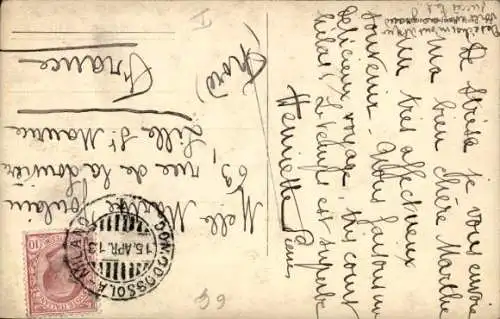 De Stresa je vous envoie
ma bien chère Marthe
un très affectueux
souvenir. Nous faisons un
délicieux voyage, très court
hélas! Le temps est superbe
Henriette
Melle Marthe Poulain
63, rue de la Louvière
Lille St Maurice
(Nord)
France
DOMODOSSOLA MILANO
15.APR.13
10
59
I